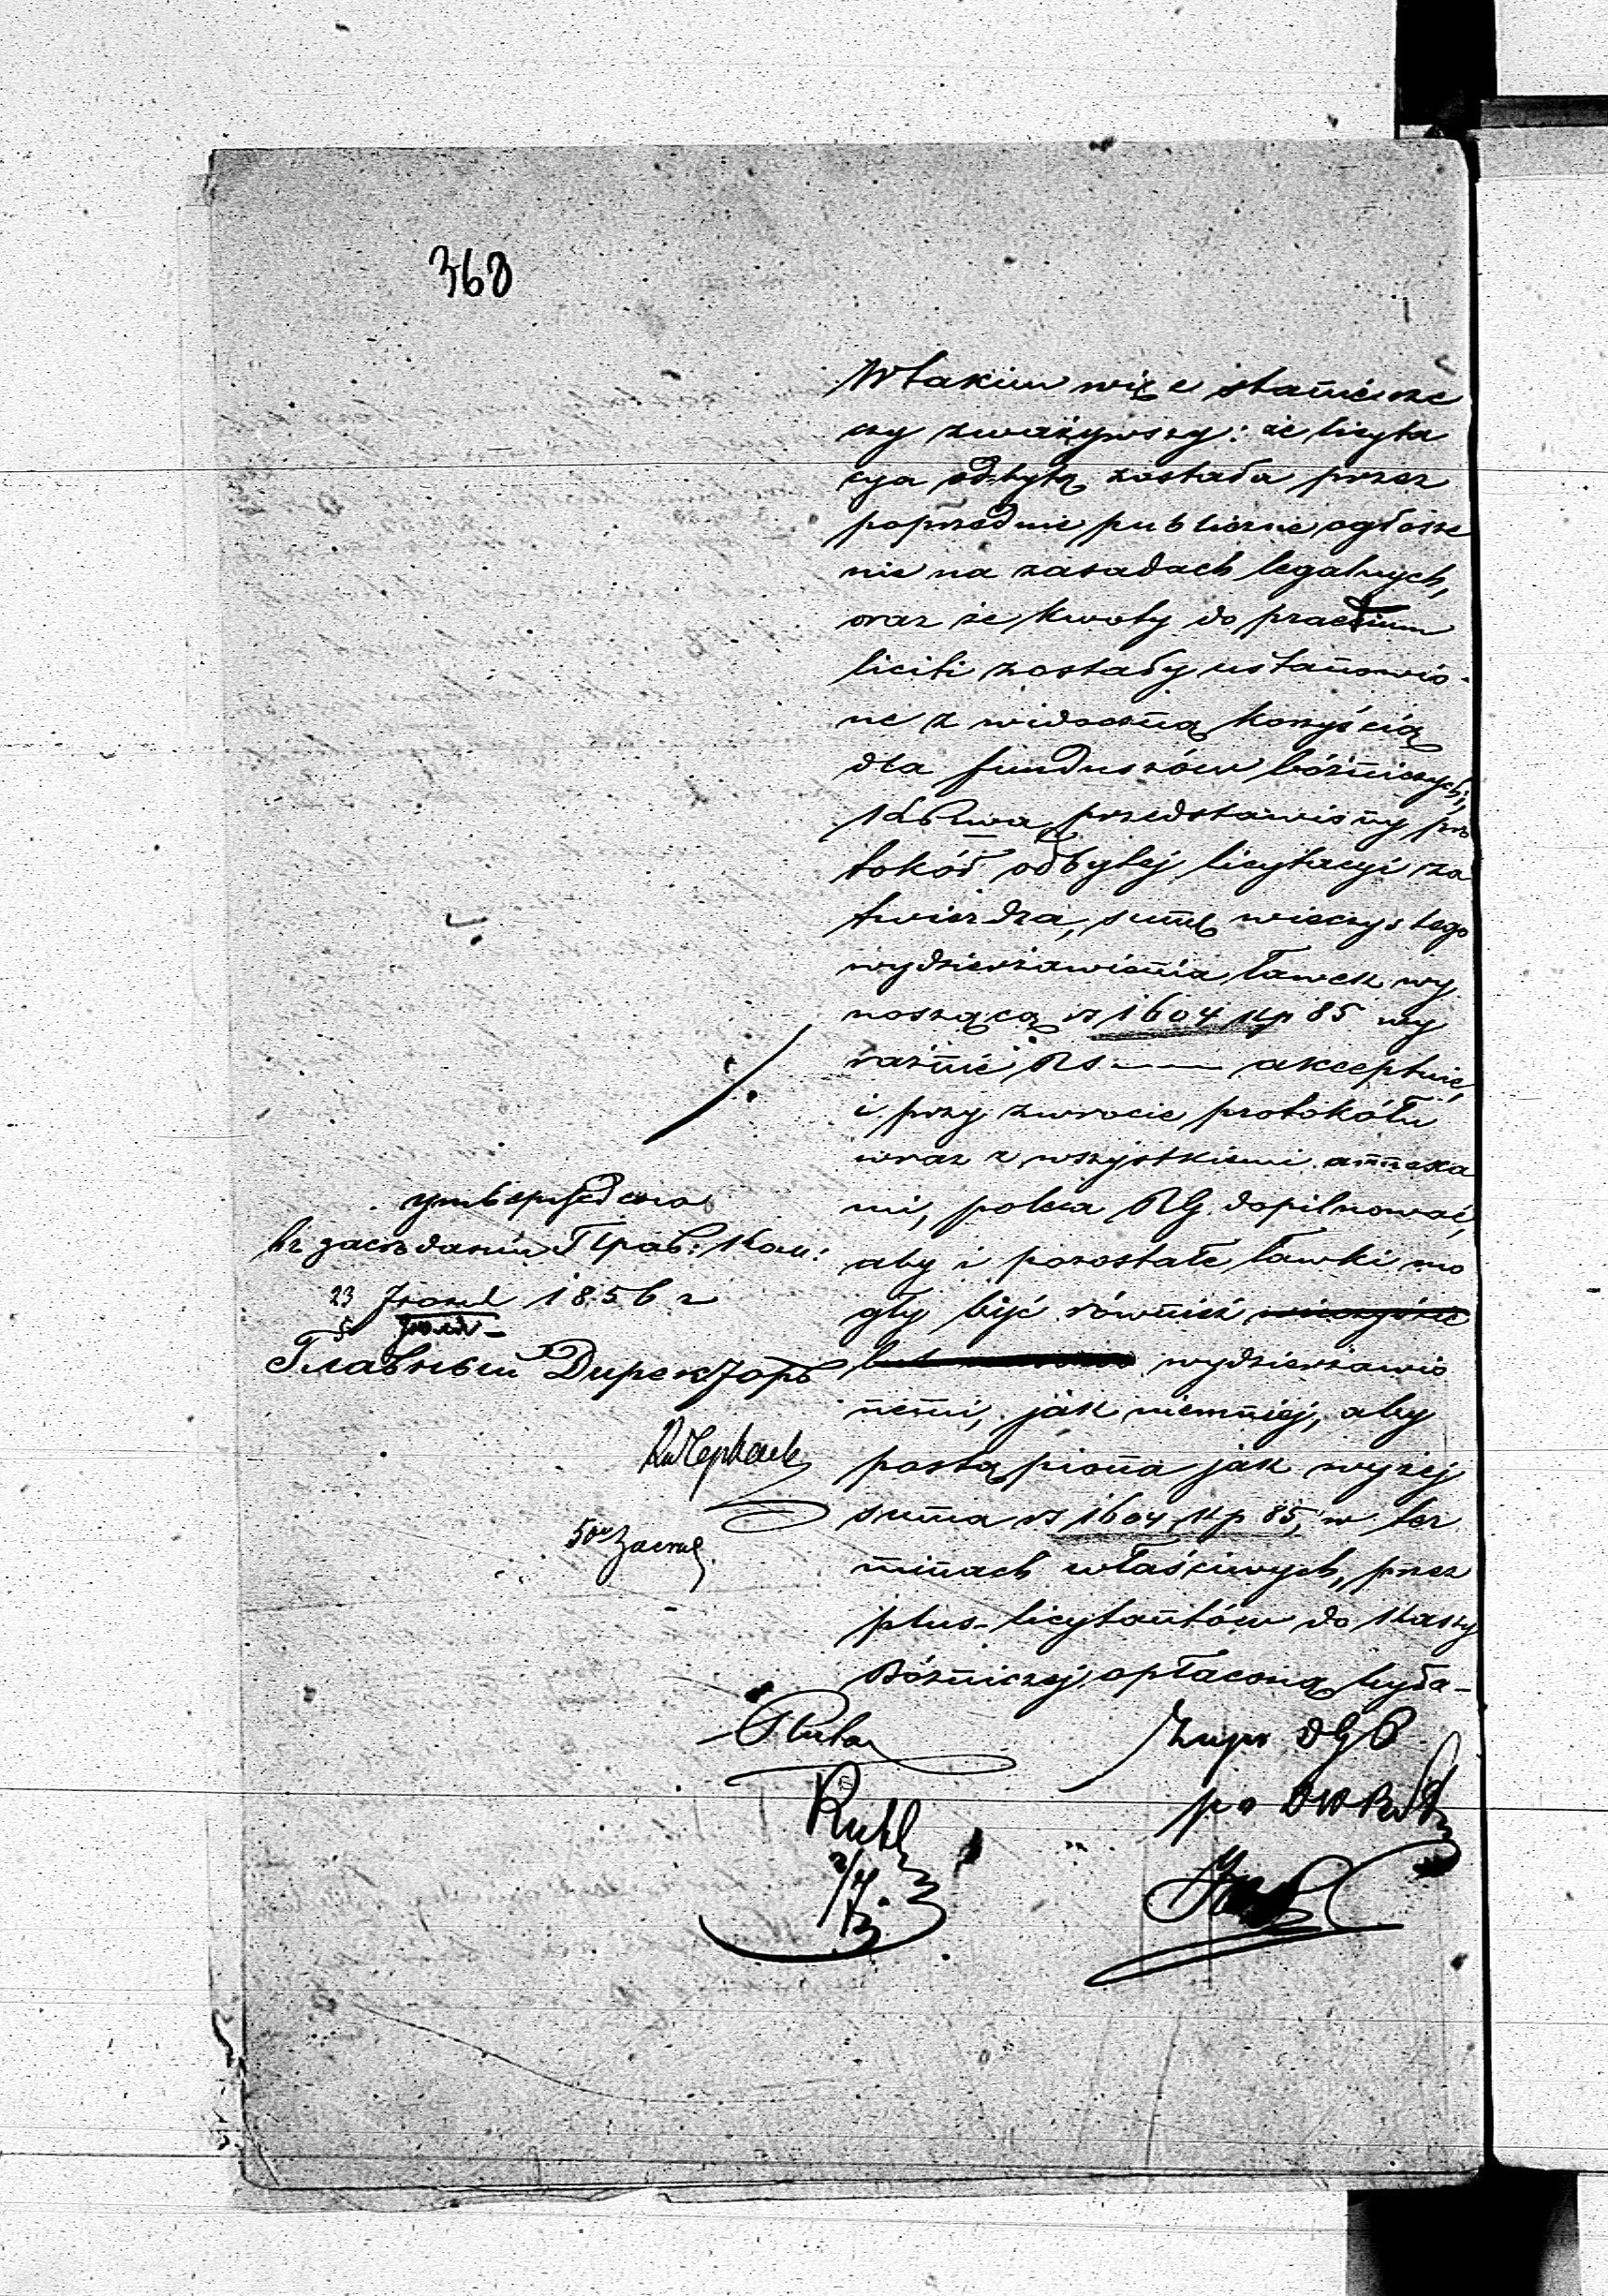 368
W takim więc stanie rze
czy zważywszy: że licyta
cya odbytą została przez
poprzednie publiczne ogłosze
nie na zasadach legalnych,
oraz że kwoty do praetium
liciti zostały ustanowio-
ne z widoczną korzyścią
dla funduszów bóżniczych;
przedstawiony pro
tokół odbytej licytacyi za
twierdza, sumę wieczystego
wydzierżawienia ławek wy
noszącą rs 1604 kp 85 wy
raźnie Rs —— akceptuie,
i przy zwrocie protokółu
wraz z wszystkiemi annexa
mi, poleca RG. dopilnować,
aby i pozostałe ławki mo
gły być również wieczyście
lub wydzierżawio
nemi, jak niemniej, aby
postąpiona jak wyżej
suma rs 1604 kp 85, w ter
minach właściwych, przez
plus-licytantów do kassy
Bóżniczej opłaconą była-
утверждено
въ засѣданіи Прав: Ком:
23 Іюня 1856 г
5 Іюля
Главный Директоръ
Ruhl